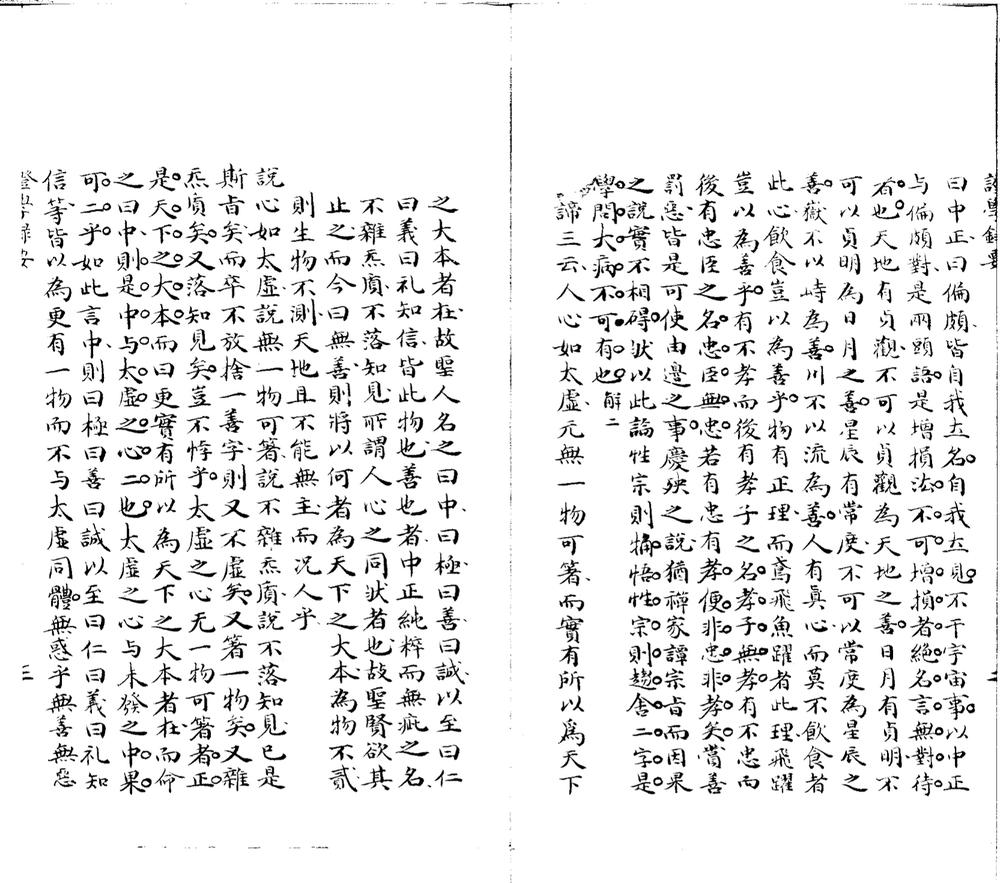 證學録要
曰中正曰偏頗皆自我立名自我立見不干宇宙事以中正
与偏頗對是兩頭語是增損法不可增損者絶名言無對待
者也天地有貞觀不可以貞觀為天地之善日月有貞明不
可以貞明為日月之善星辰有常度不可以常度為星辰之
善嶽不以峙為善川不以流為善人有真心而莫不飲食者
此心飲食豈以為善乎物有正理而鳶飛魚躍者此理飛躍
豈以為善乎有不孝而後有孝子之名孝子無孝有不忠而
後有忠臣之名忠臣無忠若有忠有孝便非忠非孝矣賞善
罰惡皆是可使由邊之事慶殃之說猶禪家譚宗旨而因果
之說實不相碍狀以此論性宗則揣悟性宗則趨舍二字是
學問大病不可有也 解二
諦三云人心如太虛元無一物可著而實有所以爲天下
之大本者在故聖人名之曰中曰極曰善曰誠以至曰仁
曰義曰礼知信皆此物也善也者中正純粹而無疵之名
不雜炁質不落知見所謂人心之同狀者也故聖賢欲其
止之而今曰無善則將以何者為天下之大本為物不貳
則生物不測天地且不能無主而况人乎
說心如太虛說無一物可著說不雜炁質說不落知見已是
斯旨矣而卒不放捨一善字則又不虛矣又著一物矣又雜
炁質矣又落知見矣豈不悖乎太虛之心无一物可著者正
是天下之大本而曰更實有所以為天下之大本者在而命
之曰中則是中与太虛之心二也太虛之心与未發之中果
可二乎如此言中則曰極曰善曰誠以至曰仁曰義曰礼知
信等皆以為更有一物而不与太虛同體無惑乎無善無惡
證學録要
三